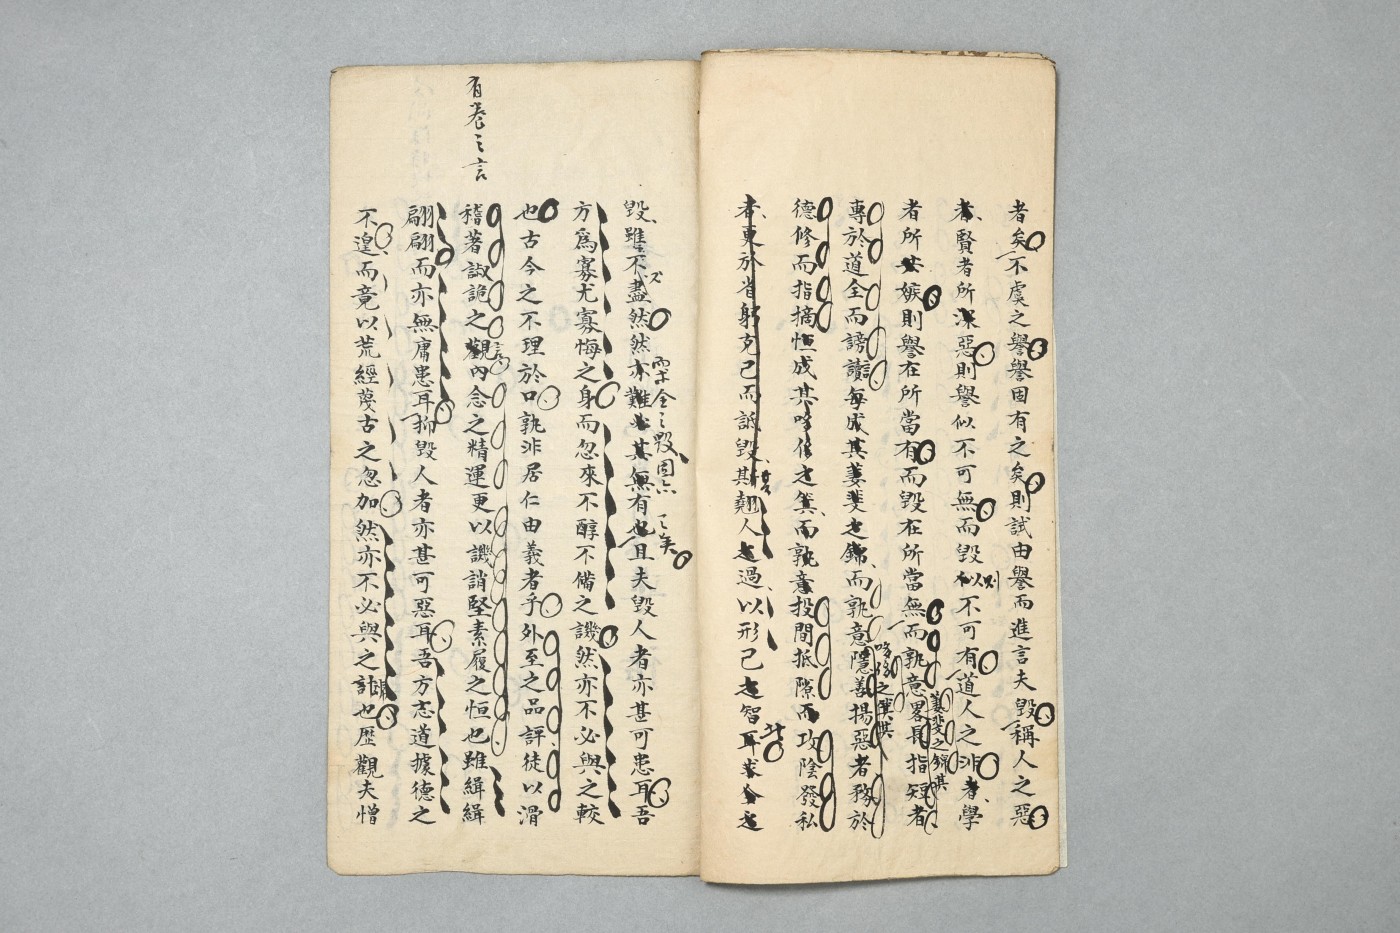 者矣不虞之譽譽固有之矣則試由譽而進言夫毀稱人之惡
者賢者所深惡則譽似不可無而毀似不可有道人之非者學
則
者所嫉則譽在所當有而毀在所當無而孰意畧長指短者
萋斐之錦其
專於道全而謗讟每成其萋斐之錦而孰意隱善揚惡者務於
哆侈之箕其
德修而指摘恒成其哆侈之箕而孰意投間抵隙而攻陰發私
者更於省躬克己而詆毀其翹人之過以形己之智耳求全之
毀雖不盡然然亦難必其無有也且夫毀人者亦甚可患耳吾
全之毀固
方爲寡尤寡悔之身而忽來不醇不備之譏然亦不必與之較
也古今之不理於口孰非居仁由義者乎外至之品評徒以滑
稽著諔詭之觀內念之精運更以譏誚堅素履之恒也雖緝緝
翩翩而亦無庸患耳抑毀人者亦甚可惡耳吾方志道據德之
不遑而竟以荒經蔑古之忽加然亦不必與之計也歷觀夫憎
有卷之言